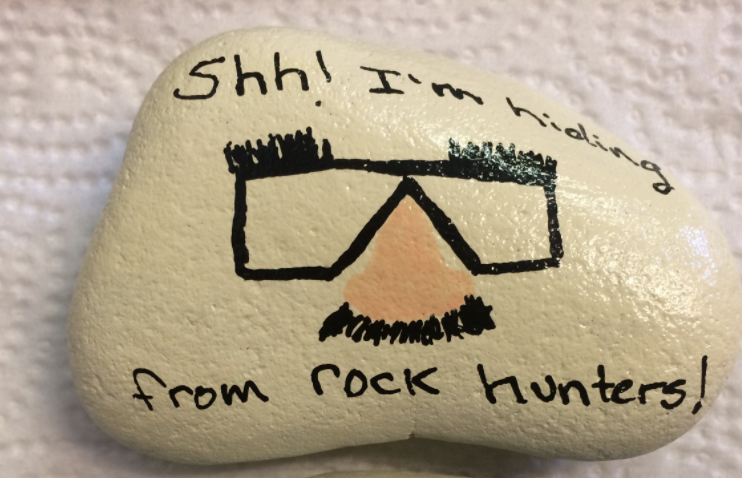 Shh! I'm hiding
from rock hunters!